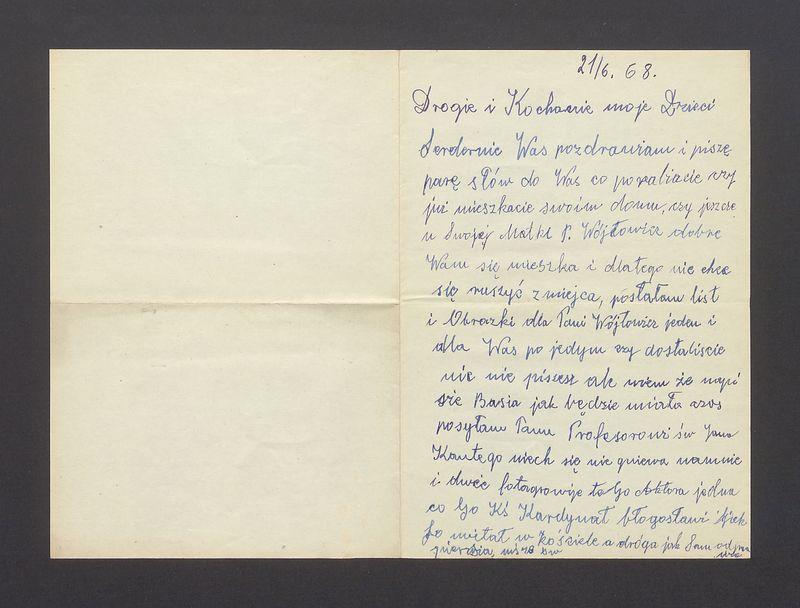 21/6. 68.
Drogie i Kochanie moje Dzieci
Serdernie Was pozdrawiam i piszę
parę słów do Was co porabiacie czy
już mieszkacie swoim domu, czy jeszcze
u Swojej Matki P. Wójtowicz dobre
Wam się mieszka i dlatego nie chce
się ruszyć z miejca, posłałam list
i Obrazki dla Pani Wójtowicz jeden i
dla Was po jedym czy dostaliście
nic nie piszesz ale wiem że napi
sze Basia jak będzie miała czos
posyłam Panu Profesorowi św Jana
Kantego niech się nie gniewa namnie
i dwée fotagrowije to Go Aktora jedna
co Go Kś Kardynał błogosławi
Go witał w kościele a dróga jak Sam
mszo św